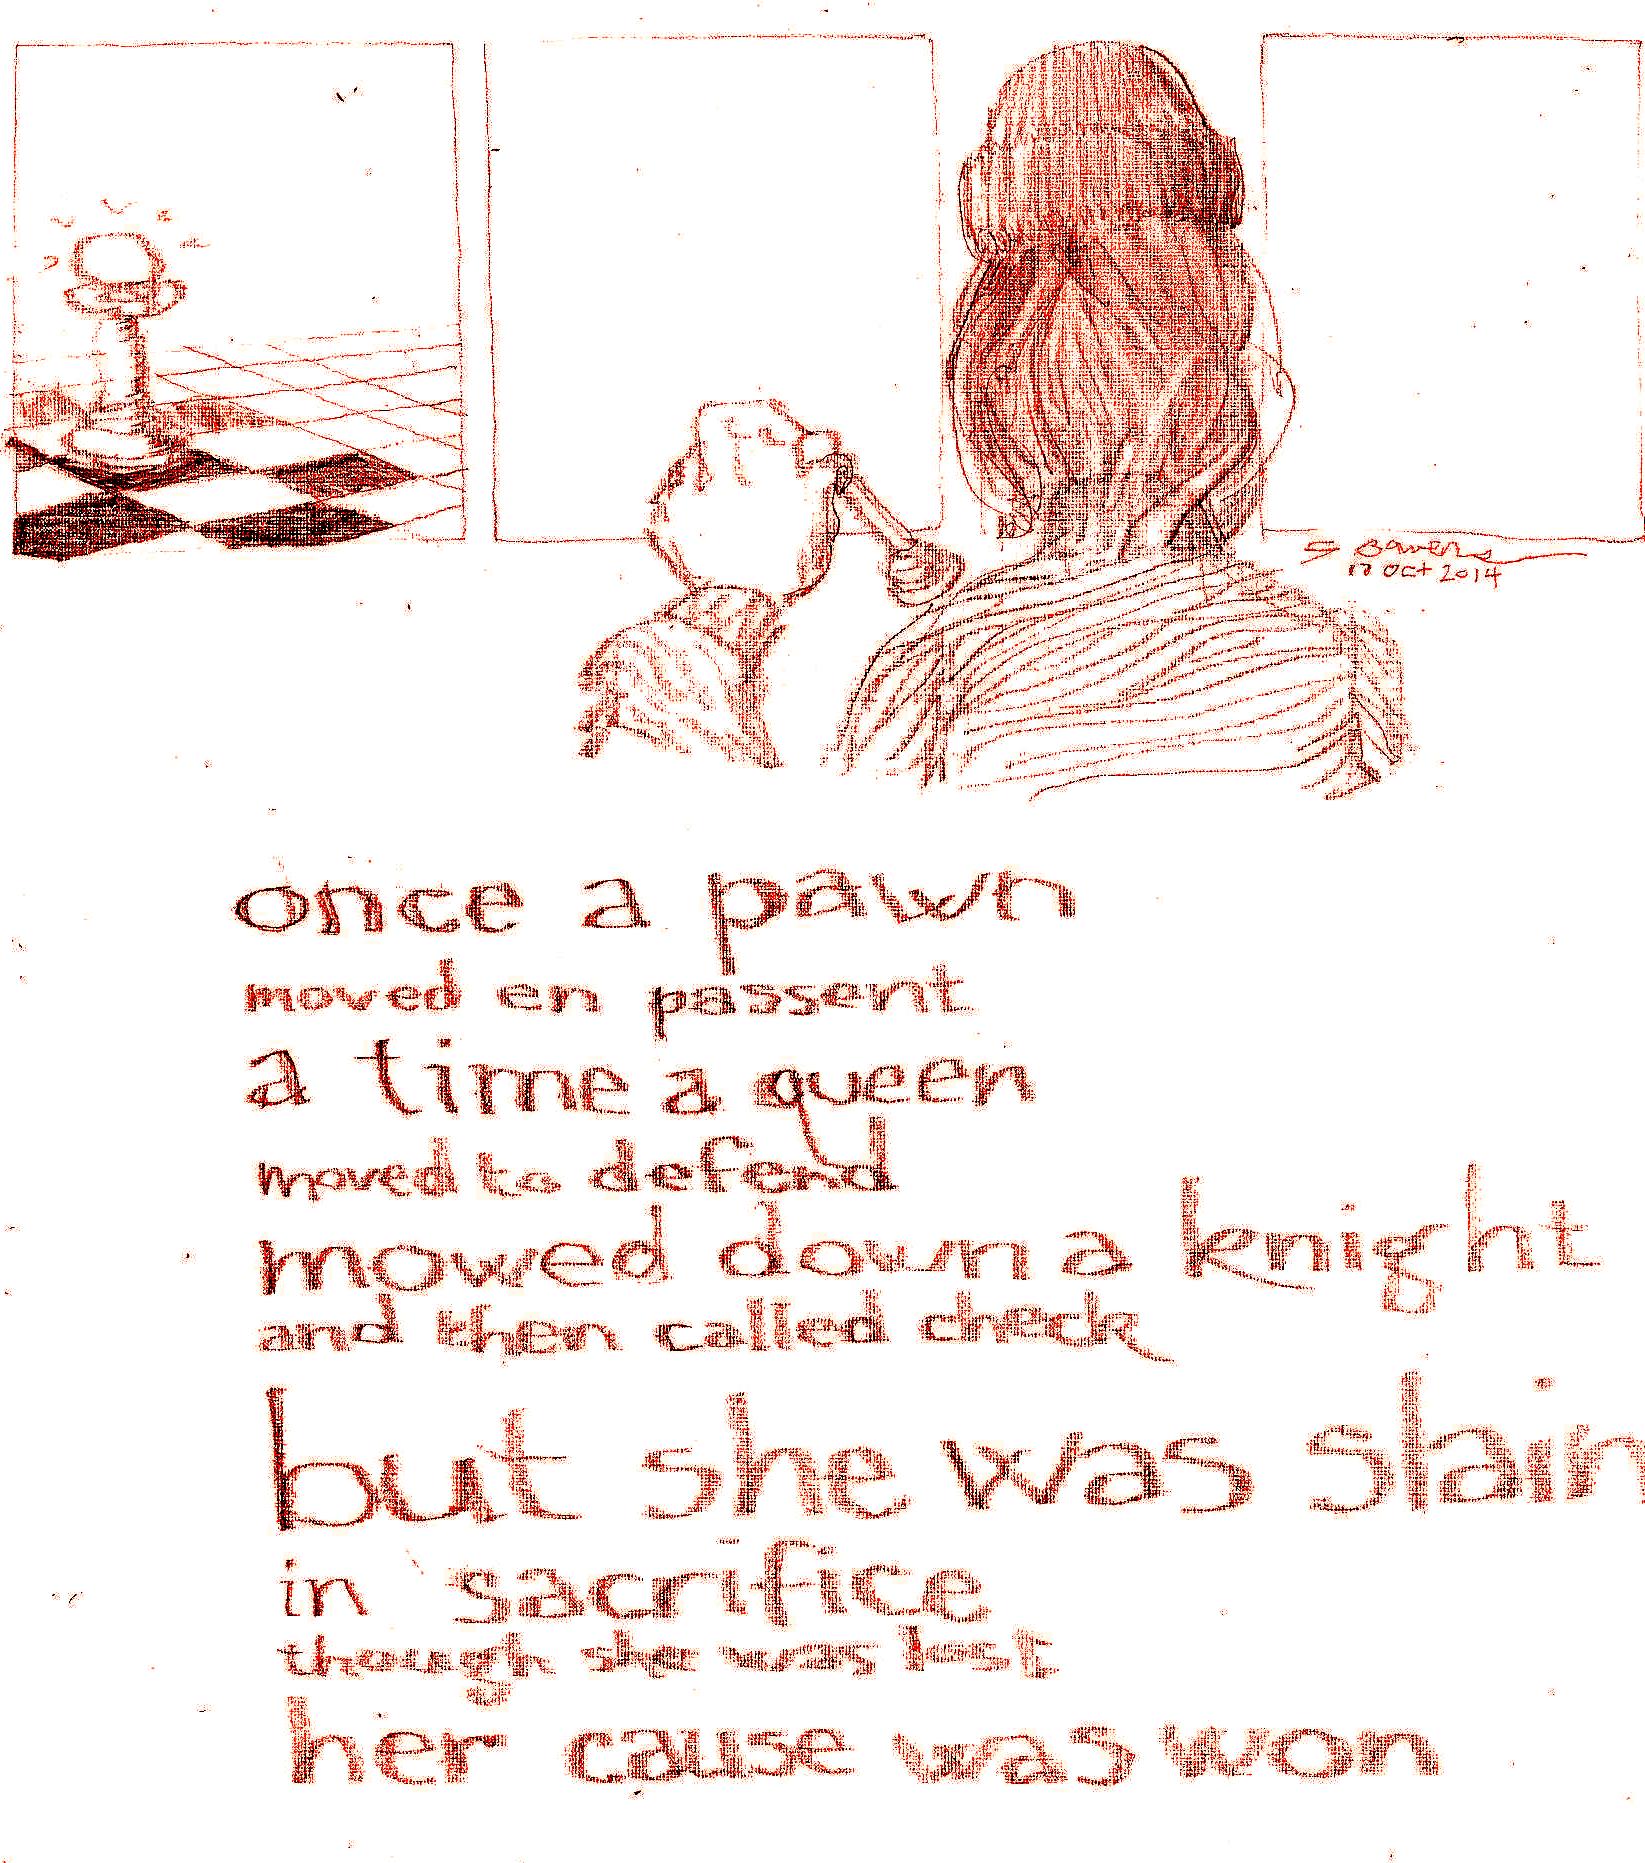 17 Oct 2014
once a pawn
moved en passent
a time a queen
moved to defend
mowed down a knight
and then called check
but she was slain
in sacrifice
though she was lost
her cause was won